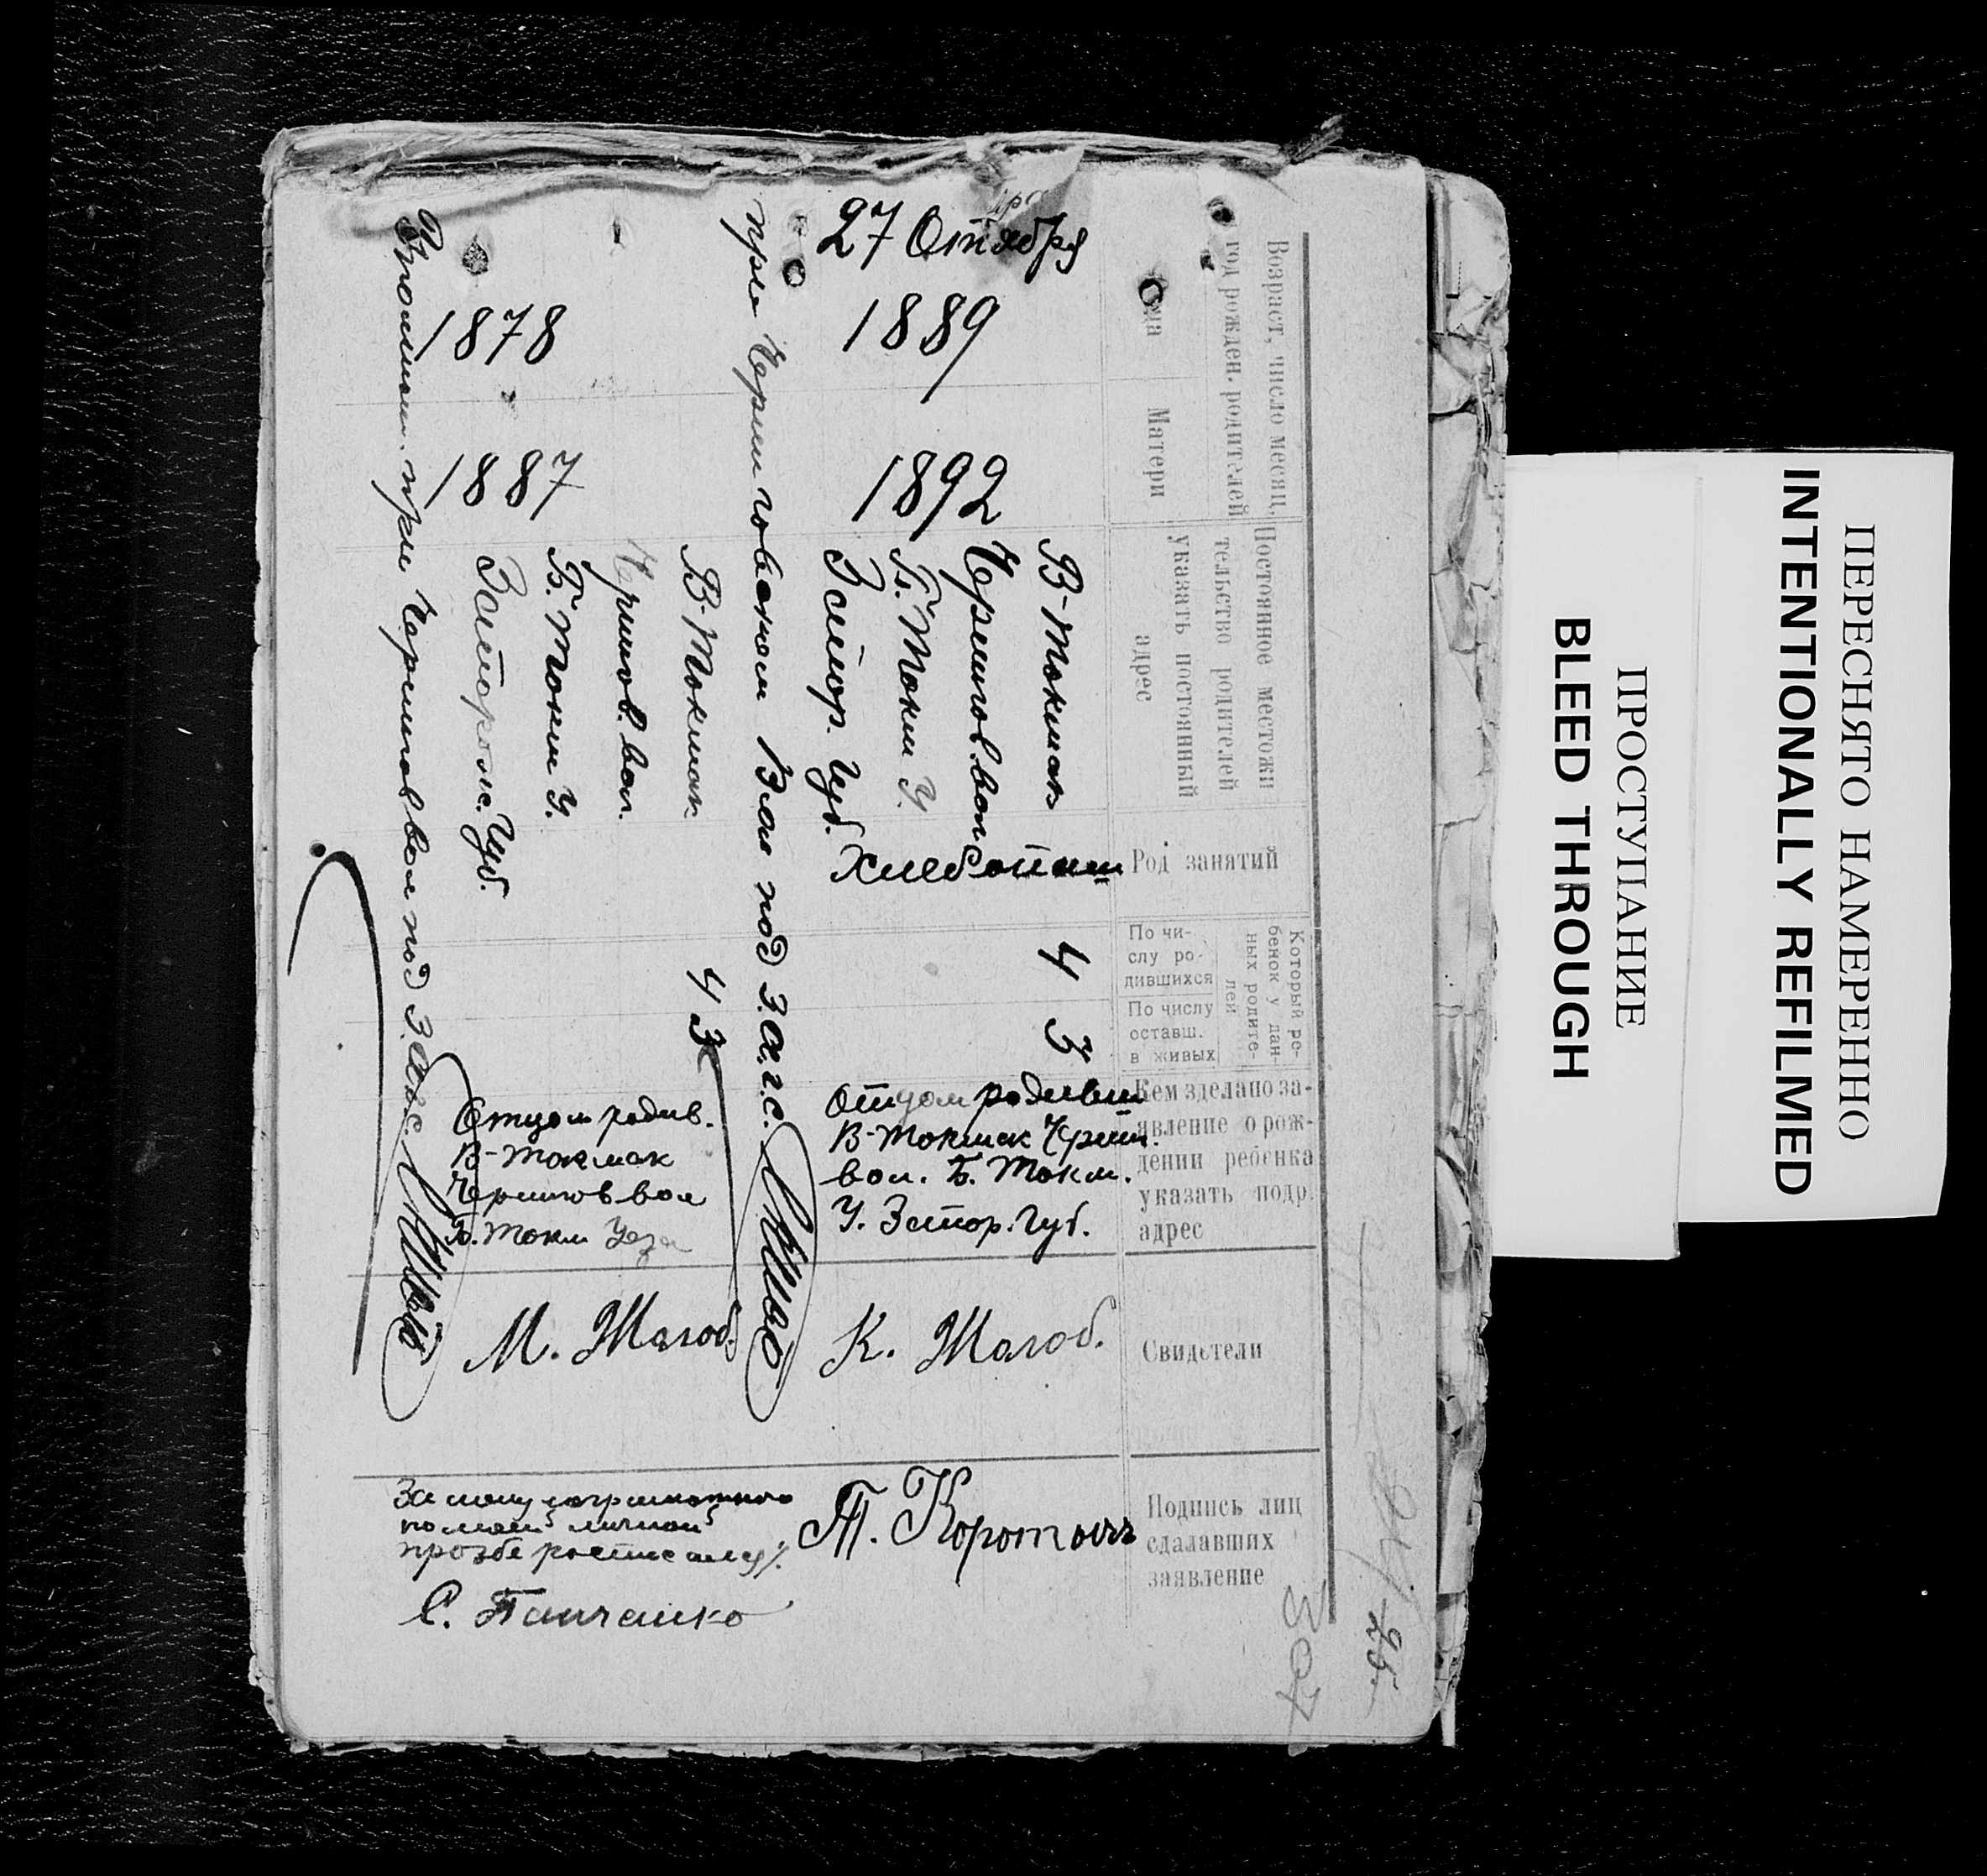 Возраст, число месяц,
год рожден. родителей
Матери
Постоянное местожи
тельство родителей
указать постоянный
адрес
Род занятий
Который ре-
бенок у дан-
ных родите-
лей
По чи-
слу ро-
дившихся
По числу
оставш.
в живых
Кем зделано за-
явление о рож-
дении ребенка
указать подр.
адрес
Свидетели
Подпись лиц
сдалавших
заявление
27 Октября
1889
1892
В-Токмак
Чернигов. вол
Б. Токм У.
Запор. Губ.
4
3
Отцом
В-Токмак
вол. Б. Токм.
У. Запор. Губ.
К. Жолоб.
Т. Коротыч
при Черниговском Вол под З.А.Г.С.
1878
1887
В-Токмак
Чернигов. вол.
Б. Токм У.
Запорож. Губ.
4 3
Отцом родив.
В-Токмак
Чернигов вол
Б. Токм Уезд
М. Жолоб.
С. Панченко
при Чернигов вол под З.А.Г.С.
307
25
ПЕРЕСНЯТО НАМЕРЕННО
INTENTIONALLY REFILMED
ПРОСТУПАНИЕ
BLEED THROUGH